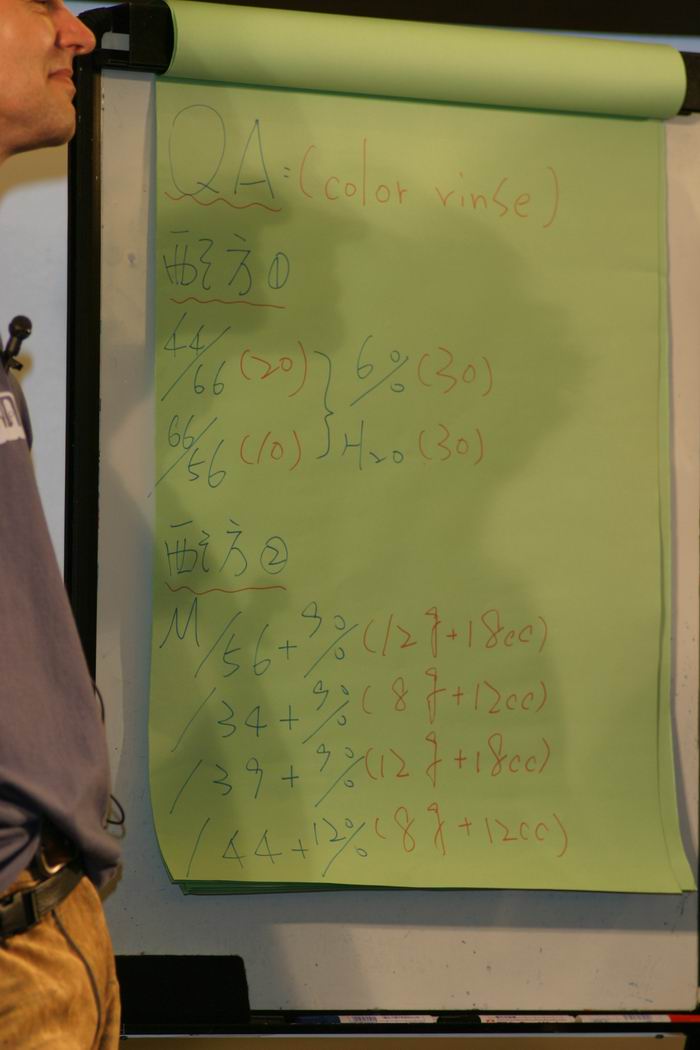 QA:(color rinse)
配方①
44/66 (20) } 6% (30)
66/56 (10) } H2O (30)
配方②
M/56+9%(12g+18cc)
/34+9%(8g+12cc)
/39+9%(12g+18cc)
/44+12%(8g+12cc)